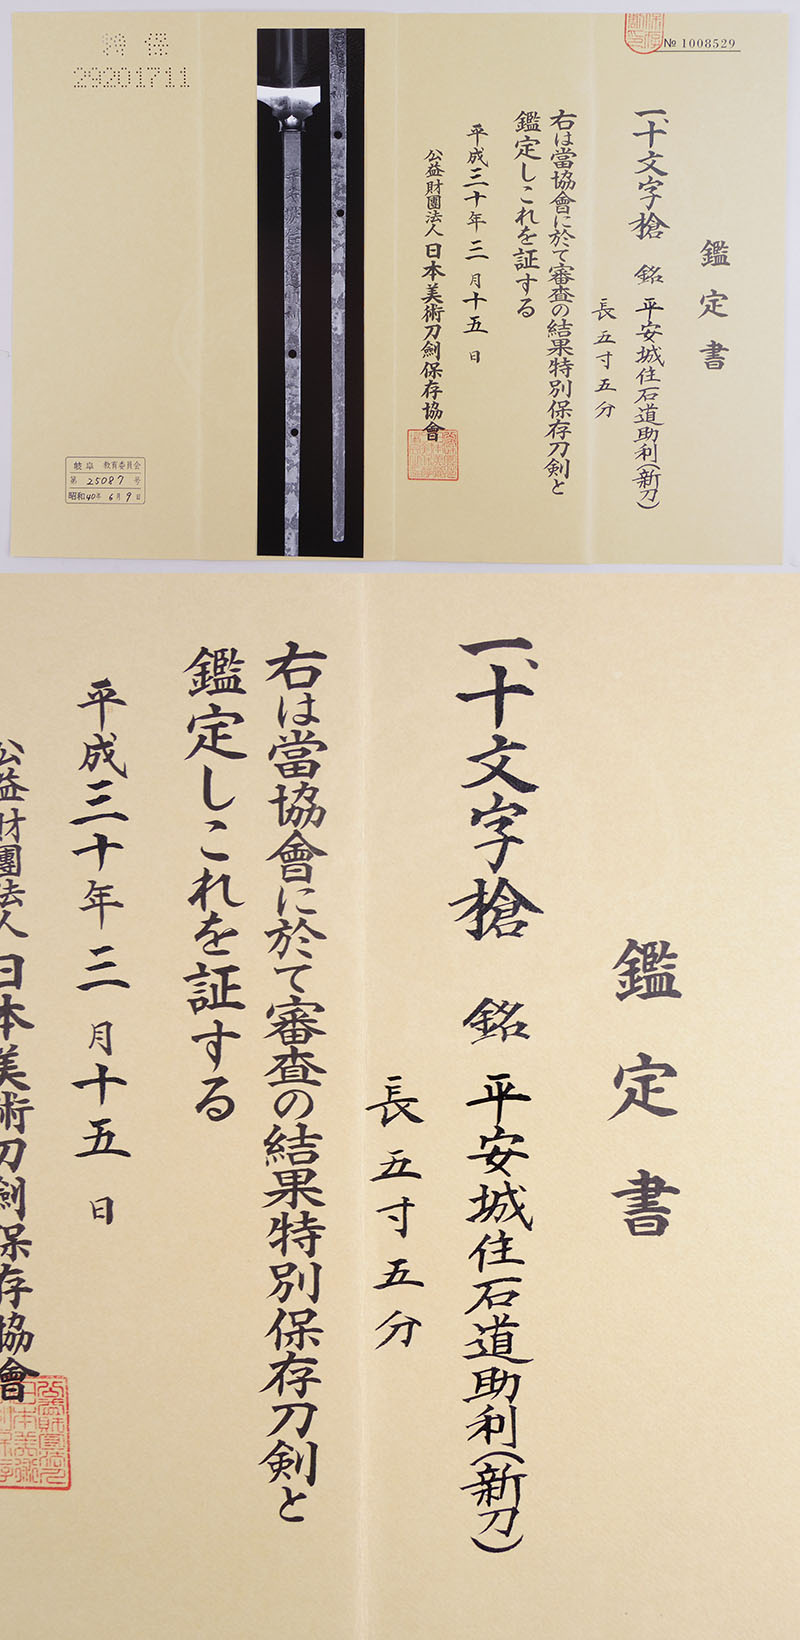 № 1008529
鑑定書
一、十文字槍 銘 平安城住石道助利(新刀)
長五寸五分
右は當協會に於て審査の結果特別保存刀剣と
鑑定しこれを証する
平成三十年三月十五日
公益財團法人 日本美術刀劍保存協會
特保
29201711
岐阜 教育委員会
第 25087 号
昭和40年6月9日
鑑定書
一、十文字槍 銘 平安城住石道助利(新刀)
長五寸五分
右は當協會に於て審査の結果特別保存刀剣と
鑑定しこれを証する
平成三十年三月十五日
公益財團法人 日本美術刀劍保存協會